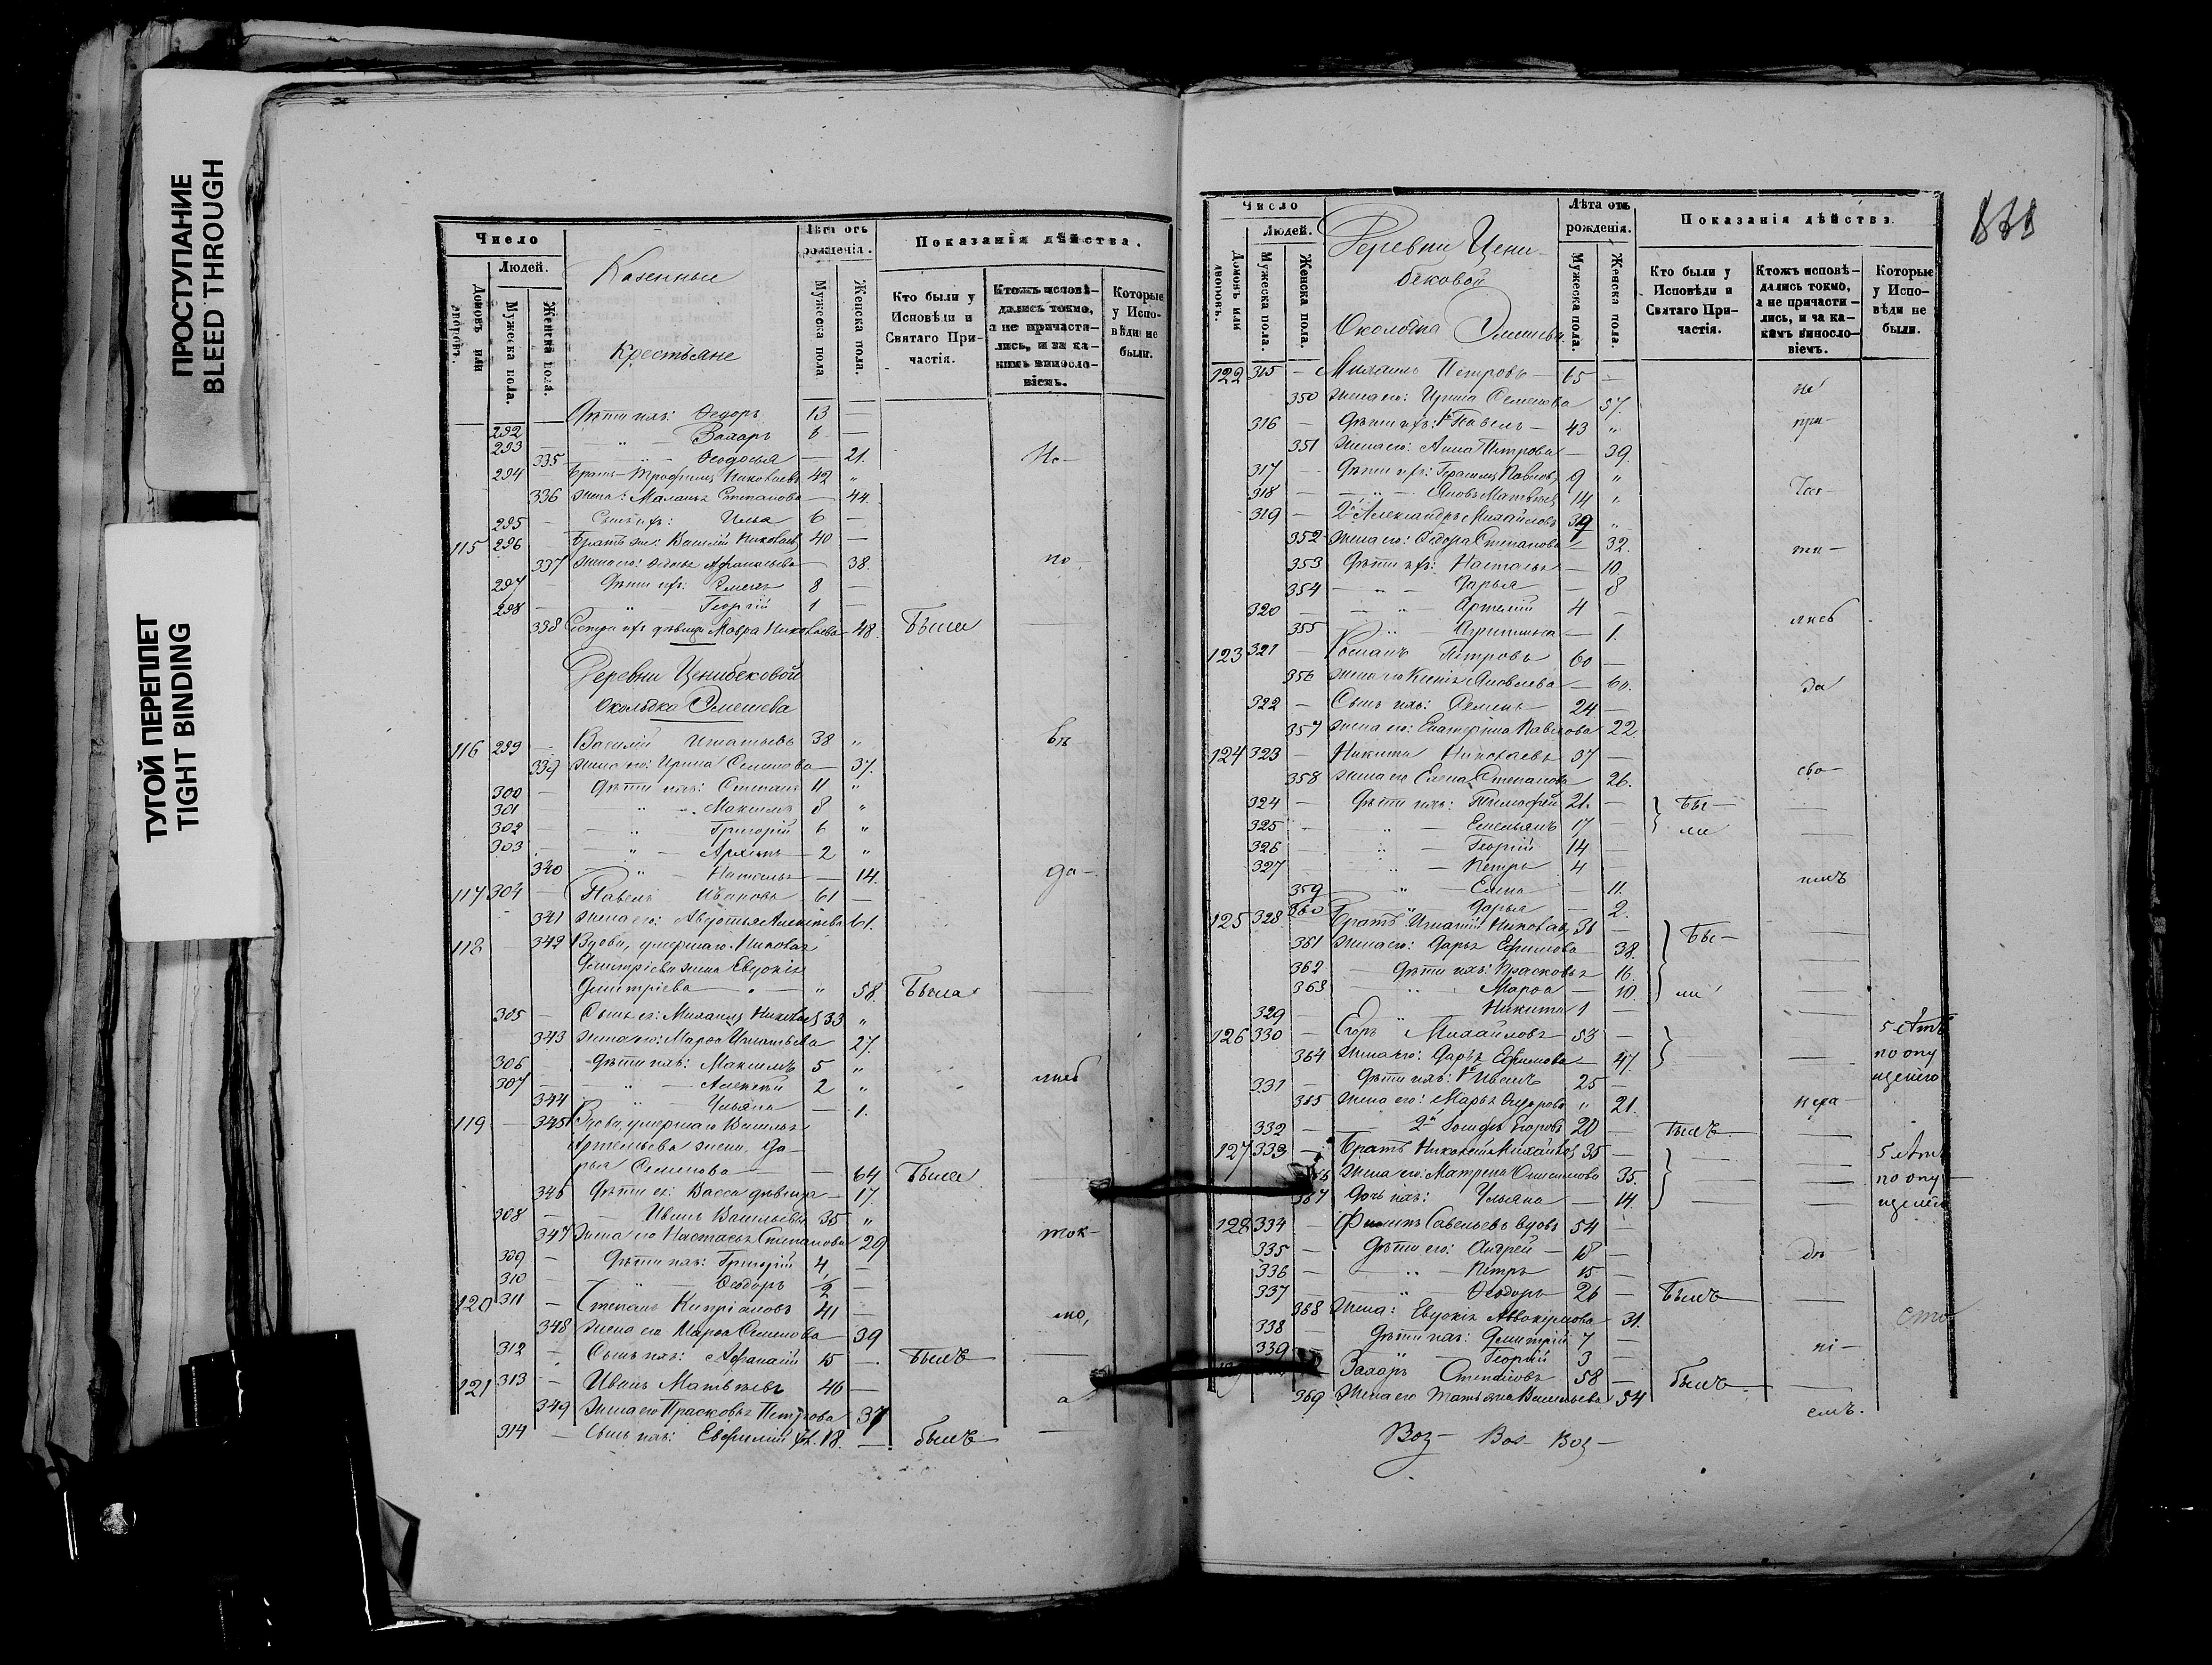 ПРОСТУПАНИЕ
BLEED THROUGH
ТУГОЙ ПЕРЕПЛЕТ
TIGHT BINDING
Число
Людей.
Домовъ или дворовъ.
Мужеска пола.
Женска пола.
Казенные
Крестьяне
Лѣта отъ рожденія.
Мужеска пола
Женска пола.
Показанія дѣйства.
Кто были у Исповѣди и Святаго При-частія.
Ктожъ исповѣ-дались токмо, а не причасти-лись, и за ка-кимъ винословіемъ.
Которые у Испо-вѣди не были.
Дѣти ихъ: Ѳедоръ 13 —
292 — " — Захаръ 6 —
293
335 — " — Ѳеодосья — 21. Не —
294 Братъ Трофимъ Николаевъ 42 "
336 Жена: Маланья Степанова — 44.
295 — Сынъ ихъ: Илья 6 —
115 296 — Братъ Василій Николаевъ 40 —
337 Жена его: Аѳанасьева — 38. по
297 Дѣти ихъ: 8 —
298 — " — Георгій 1 —
338 Сестра ихъ дѣвица Мавра Николаева — 48. Была —
Деревни Ценибековой
Околодка Элешева
116 299 — Василій Игнатьевъ 38 " въ
339 Жена его: Ирина Семенова — 37.
300 — Дѣти ихъ: Степанъ 11 "
301 " — Максимъ 8 "
302 — " Григорій 6 "
303 — " — Архипъ — 2 "
340 — " — Наталья — 14. да —
117 304 — Павелъ Ивановъ 61 —
341 Жена его: Авдотья Алексѣева 61.
118 342 Вдова, умершаго Николая
Дмитріева жена Евдокія
Дмитріева — " — " 58. Была —
305 — Сынъ ея: Михаилъ Николаевъ 33 "
343 Жена его: Марѳа Игнатьева 27.
306 — Дѣти ихъ: Максимъ 5 "
307 — " — Алексѣй 2 "
344 — " — Ульяна — 1.
119 — 345 Вдова, умершаго Василья
Артемьева жена Да-
рья Семенова — — 64 Была —
346 Дѣти ея: Васса дѣвица — 17.
308 — Иванъ Васильевъ 35 "
347 Жена его Настасья Степанова 29 ток-
309 — Дѣти ихъ: Григорій 4 —
310 — " — Ѳеодоръ 2 —
120 311 — Степанъ Кипріановъ 41 — мо,
348 Жена его Марѳа Семенова — 39
312 — Сынъ ихъ: Аѳанасій 15 — Былъ —
121 313 — Иванъ Матвѣевъ 46 — а
349 Жена его Прасковья Петрова 37
314 — Сынъ ихъ: Евѳимій 18. — былъ —
Число
Людей.
Домовъ или дворовъ.
Мужеска пола.
Женска пола.
Деревни Цени-
бековой
Околодка Элешева
Лѣта отъ рожденія.
Мужеска пола.
Женска пола.
Показанія дѣйства
Кто были у Исповѣди и Святаго При-частія.
Ктожъ исповѣ-дались токмо, а не причасти-лись, и за ка-кимъ винословіемъ.
Которые у Испо-вѣди не были.
122 315 — Михаилъ Петровъ — 65 — не
350 Жена его: Ирина Семенова 57.
316 — Дѣти ихъ: 1й Павелъ — 43 " при-
351 Жена его: Анна Петрова — 39.
317 — Дѣти ихъ: Герасимъ Павловъ 9 "
318 — — " — Матвѣй 14 "
319 — 2й Александръ Михайловъ 39 "
352 Жена его: Ѳедора Степанова — 32.
353 Дѣти ихъ: Настасья — 10.
354 — " — Дарья — 8
320 — " Артемій 4 —
355 — " Агрипина — 1.
123 321 — Романъ Петровъ 60 —
356 Жена его Ксенія Яковлева — 60. за
322 — Сынъ ихъ: Семенъ 24 —
357 Жена его: Екатерина Павлова 22.
124 323 — Никита Николаевъ 37 —
358 Жена его Елена Степанова 26. сво —
324 — Дѣти ихъ: Тимоѳей 21. — Бы- —
325 — " — Емельянъ 17 — ли —
326 — " — Георгій 14 —
327 — " — Петръ 4 —
359 — " — Елена — 11.
360 — " Дарья — 2.
125 328 — Братъ Игнатій Николаевъ 36 — Бы- —
361 Жена его: Дарья Ефимова — 38. —
362 — Дѣти ихъ: Прасковья — 16. —
363 — " Марѳа — 10. ли —
329 — " Никита 1 —
126 330 — Егоръ Михайловъ 53 — — 5 лѣтъ
364 Жена его: Дарья Ефимова — 47. — по опу
331 — Дѣти ихъ: 1й Иванъ 25 — щенію
365 Жена его: Марья Ѳедорова " 21. нера-
332 — 2й Іосифъ Егоровъ 20 — Былъ —
127 333 — Братъ Николай Михайловъ 35 — — 5 лѣтъ
366 Жена его: Матрена Онисимова 35. — по опу
367 Дочь ихъ: Ульяна — 14. — щенію
128 334 — Филипъ Савельевъ вдовъ 54 —
335 — Дѣти его: Андрей — 18 —
336 — " — Петръ 15 —
337 — " — Ѳеодоръ 26 — Былъ —
368 Жена: Евдокія Аввакумова 31.
338 — Дѣти ихъ: Дмитрій 7 —
339 — " — Георгій 3 — ні —
Захаръ Степановъ 58 — былъ —
369 Жена его Татьяна Васильева 54 емъ.